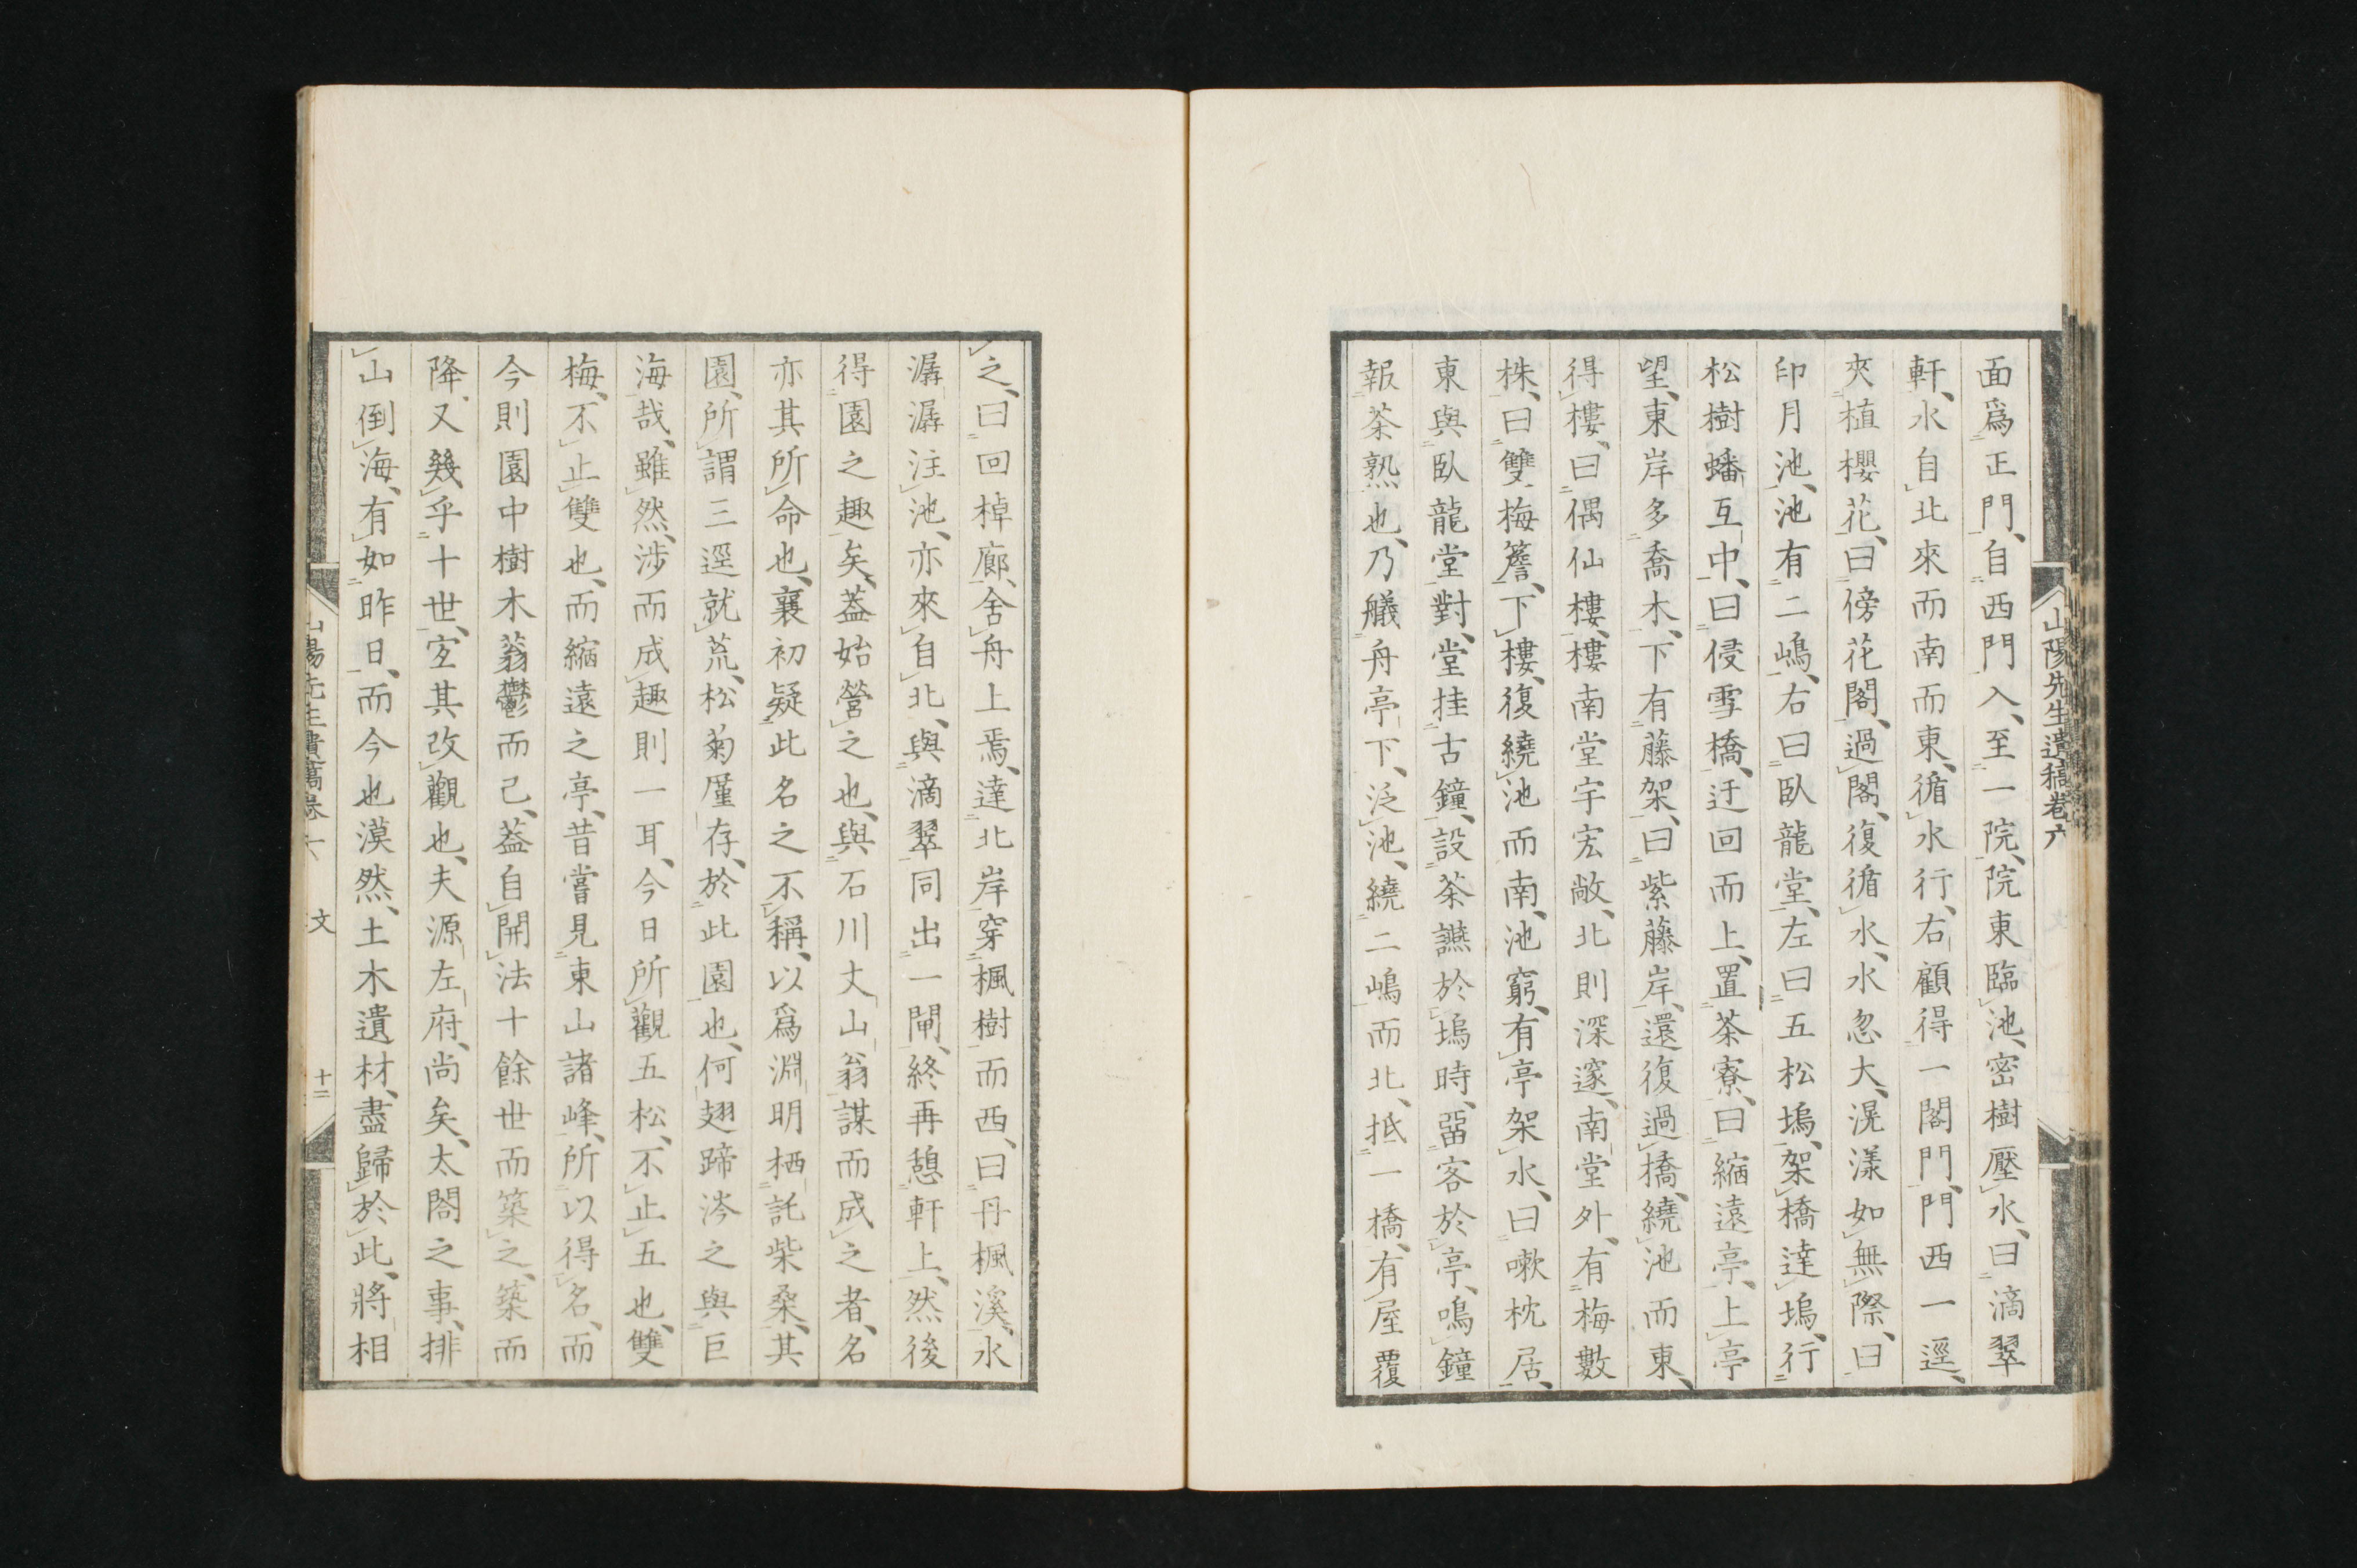 山陽先生遺稿卷六
面爲正門、自西門入、至一院、院東臨池、密樹壓水、曰滴翠
軒、水自北來而南而東、循水行、右顧得一閣門、門西一逕、
夾植櫻花、曰傍花閣、過閣、復循水、水忽大、滉漾如無際、曰
印月池、池有二嶋、右曰臥龍堂、左曰五松塢、架橋達塢、行
松樹蟠互中、曰侵雪橋、迂回而上、置茶寮、曰縮遠亭、上亭
望、東岸多喬木、下有藤架、曰紫藤岸、還復過橋、繞池而東、
得樓、曰偶仙樓、樓南堂宇宏敞、北則深邃、南堂外、有梅數
株、曰雙梅簷、下樓、復繞池而南、池窮、有亭架水、曰嗽枕居、
東與臥龍堂對、堂挂古鐘、設茶讌於塢時、畱客於亭、鳴鐘
報茶熟也、乃艤舟亭下、泛池、繞二嶋而北、抵一橋、有屋覆
之、曰回棹廊、舍舟上焉、達北岸、穿楓樹而西、曰丹楓溪、水
潺潺注池、亦來自北、與滴翠同出一閘、終再憩軒上、然後
得園之趣矣、葢始營之也、與石川丈山翁謀而成之者、名
亦其所命也、襄初疑此名之不稱、以爲淵明栖託柴桑、其
園、所謂三逕就荒、松菊厪存、於此園也、何翅蹄涔之與巨
海哉、雖然、涉而成趣則一耳、今日所觀五松、不止五也、雙
梅、不止雙也、而縮遠之亭、昔嘗見東山諸峰、所以得名、而
今則園中樹木蓊鬱而已、葢自開法十餘世而築之、築而
降、又幾乎十世、宐其改觀也、夫源左府、尚矣、太閤之事、排
山倒海、有如昨日、而今也漠然、土木遺材、盡歸於此、將相
文
十二